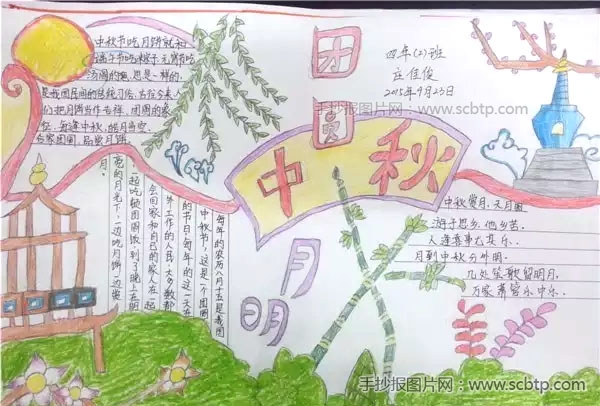 团圆
中秋
月明
四年(2)班
庄佳俊
2015年9月23日
手抄报图片网-www.scbtp.com
中秋节吃月饼就和
端午节吃粽子、元宵节吃
汤圆的 思是一样的.
是我国民间的传统习俗.古往今来,
人们把月饼当作吉祥、团圆的象
征,每逢中秋,皓月当空,
合家团圆,品尝月饼.
每年的农历八月十五是我国
中秋节,这是一个团圆
的节日.每年的这一天在
外工作的人民,大多数都
会回家和自己的家人在一起
一起吃顿团圆饭到了晚上在明
亮的月光下,一边吃月饼一边赏
月.
中秋赏月.天月圆
游子思乡.他乡苦.
人逢喜事尤其乐.
月到中秋分外明.
几处笙歌留朗月.
万家箫管乐中乐.
手抄报图片网-www.scbtp.com